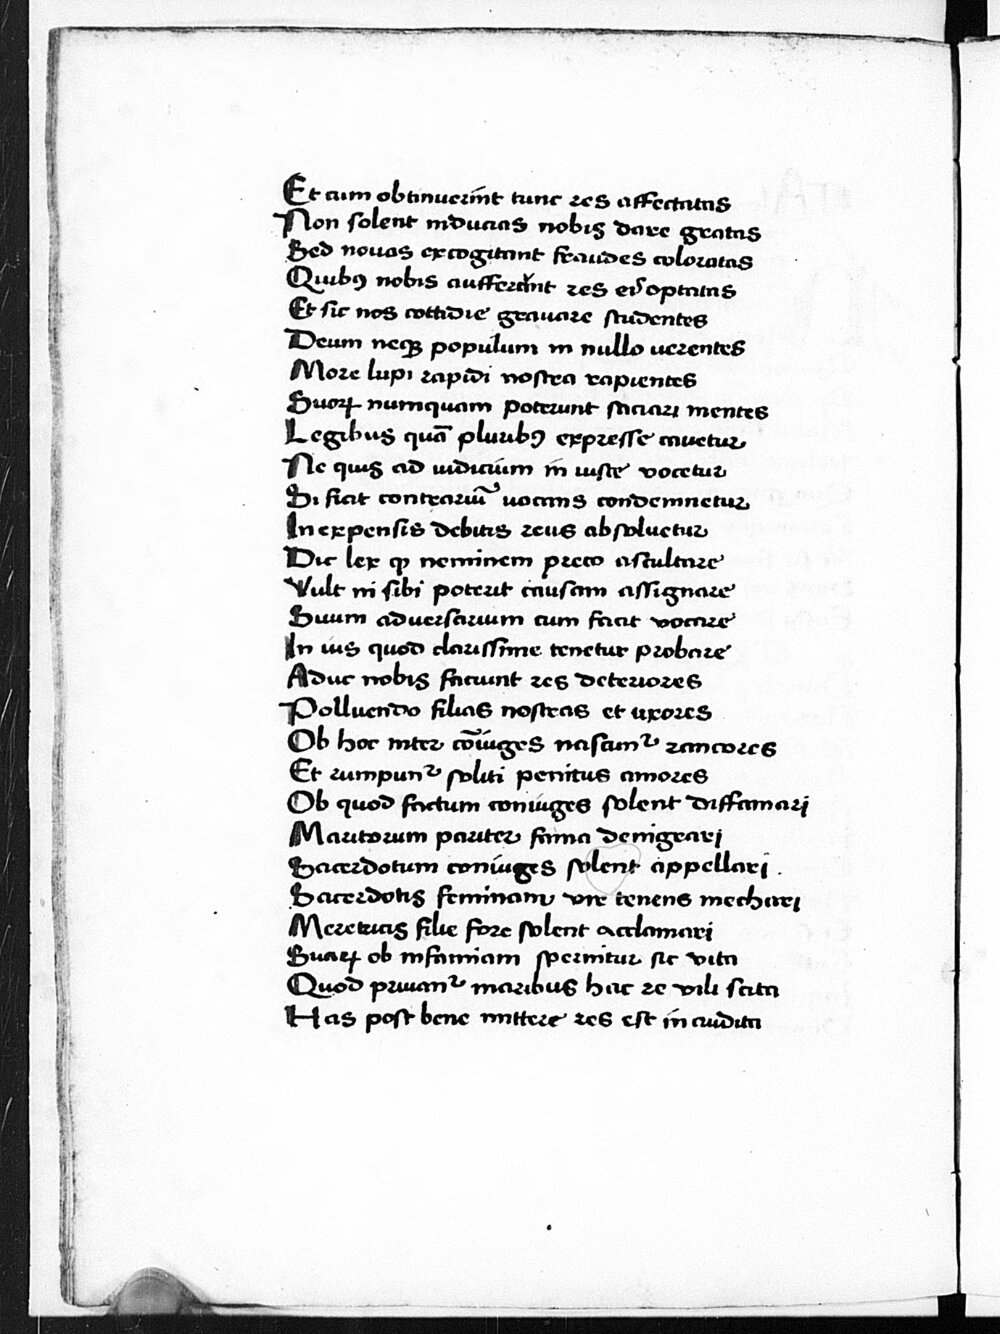 Et cum obtinuerint tunc res affectatas
Non solent inducias nobis dare gratas
Sed nouas excogitant fraudes coloratas
Quibꝯ nobis aufferant res exoptatas
Et sic nos cottidie grauare studentes
Deum neqꝫ populum in nullo uerentes
More lupi rapidi nostra rapientes
Suoꝝ numquam poterunt saciari mentes
Legibus quā pluribꝯ expresse cauetur
Ne quis ad iudicium in iuste vocetur
Si fiat contrariū uocans condemnetur
In expensis debitis reus absoluetur
Dic lex ꝙ neminem preco ascultare
Vult ni sibi poterit causam assignare
Suum aduersarium cum facit vocare
In ius quod clarissime tenetur probare
Aduc nobis faciunt res deteriores
Polluendo filias nostras et uxores
Ob hoc inter cōiuges nascunt᷑ rancores
Et rumpunt᷑ soliti penitus amores
Ob quod factum coniuges solent diffamari
Maritorum pariter fama denigrari
Sacerdotum coniuges solent appellari .
Sacerdotis feminam vir tenens mechari
Meretricis filie fore solent acclamari
Suaꝝ ob infamiam spernitur sic vita
Quod priuant᷑ maribus hac re vili scita
Has post bene mittere res est in audita